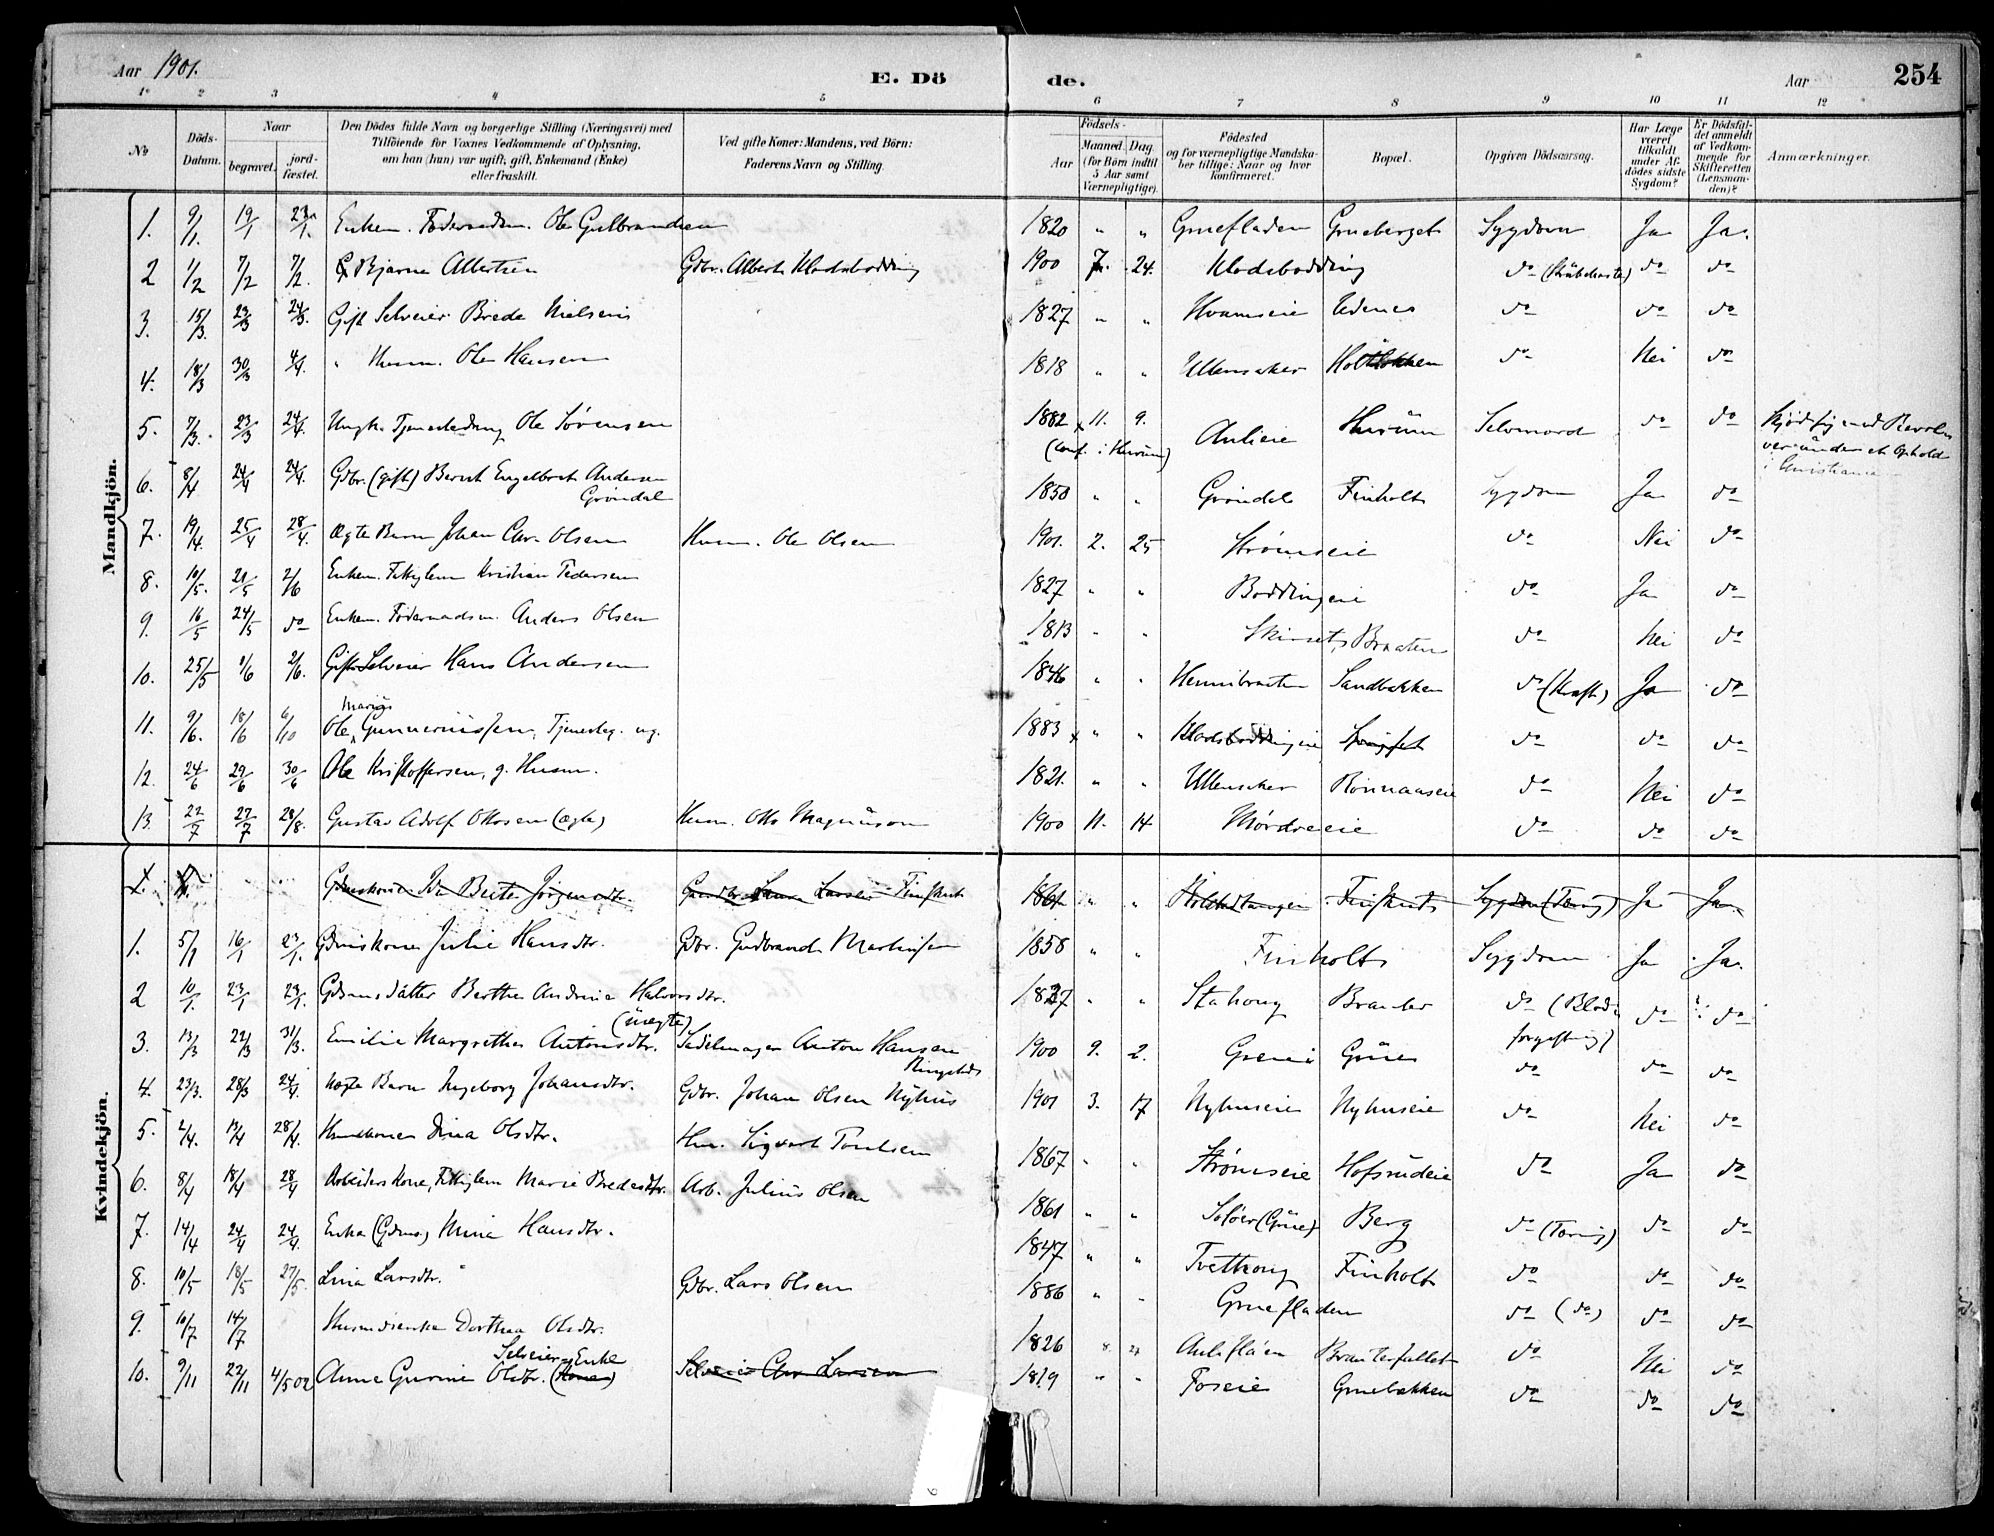 Aar 1901.
E. Döde.
Aar
254
1. 2 3 4 5 6 7 8 9 10 11 12
No
Döds-Datum.
Naar
begravet.
jord-fæstet.
Den Dödes fulde Navn og borgerlige Stilling (Næringsvei) med
Tilföiende for Voxnes Vedkommende af Oplysning,
om han (hun) var ugift, gift, Enkemand (Enke)
eller fraskilt.
Ved gifte Koner: Mandens, ved Börn:
Faderens Navn og Stilling.
Födsels-
Aar
Maaned. Dag.
(for Börn indtil
5 Aar samt
Værnepligtige).
Födested
og for værnepligtige Mandska-
ber tillige: Naar og hvor
konfirmeret.
Bopæl.
Opgiven Dödsaarsag.
Har Læge
været
tilkaldt
under Af-
dödes sidste
Sygdom?
Er Dödsfal-
det anmeldt
af Vedkom-
mende for
Skifteretten
(Lensman-
den)?
Anmærkninger.
Mandkjön.
1. 9/1 19/1 23/1 Enkem. Föderaadsm. Ole Gulbrandsen 1820 " " Gruefladen Grueberget Sygdom Ja Ja.
2 1/2 7/2 7/2. Bjarne Albertsen Gdbr. Albert Klodsbodding 1900 7. 24. Klodsbodding do do do
3. 15/3 23/3 24/3. Gift Selveier Brede Nielsen 1827 " " Hvamseie Udenes do do do
4. 18/3 30/3 4/4. " Husm. Ole Hansen 1818 " " Ullensaker do Nei do
5. 7/3. 23/3 24/4. Ungk. Tjenestedreng Ole Sørensen 1882 11. 9. Aulieie Hurum Selvmord do do Skjød sig med Revol
(Conf. i Hurum) ver under et Ophold
i Christiania
6. 8/4 24/4 24/4. Gdbr. (gift) Bernt Engelbret Andersen
Grøndal 1850 " " Grøndal Finholt Sygdom Ja do
7. 19/4. 25/4 28/4. Ægte Barn Johan Chr. Olsen Husm. Ole Olsen 1901. 2. 25 Strømseie do Nei do
8. 10/5. 21/5 2/6 Enkem. Fattiglem Kristian Pedersen 1827 " " Boddingeie do Ja do
9. 16/5 24/5 do Enkem. Föderaadsm. Anders Olsen 1813 " " Skinset, Braaten do Nei do
10. 25/5 1/6 2/6. Gift Selveier Hans Andersen 1846 " " Hennibraaten Sandbakken do (Kræft) Ja do
11. 9/6. 18/6 6/10 Ole Marius Gunneriussen, Tjenesteg. ug. 1883 " " Klodsboddingeie do do do
12. 24/6 29/6 30/6 Ole Kristoffersen, g. Husm. 1821. " " Ullensaker Rönnaaseie do Nei do
13. 22/7 27/7 28/8. Gustav Adolf Ottosen (ægte) Husm. Otto Magnuson 1900 11. 14 Mørdreeie do do do
Kvindekjön.
1. Gdmskone Berte Jörgensdtr. Larsen Finstad 1861 " " Ja Ja.
1. 5/1 16/1 23/1. Gdmskone Julie Hansdtr. Gdbr. Gudbrand Martinsen 1858 " " Finholt Sygdom Ja Ja.
2 10/1. 23/1 23/1. Gdmsdatter Berthe Andrine Halvorsdtr. 1837 " " Brauter do (Blod-
forgiftning) do do
3. 13/3 22/3 31/3. Emilie Margrethe Antonsdtr. (uægte) Sadelmager Anton Hansen
Ringstad 1900 9. 2. Grueni Grüe do do do
4. 23/3. 28/3 24/4. Ægte Barn Ingeborg Johansdtr. Gdbr. Johan Olsen Nyhus 1901 3. 17 Nyhuseie Nyhuseie do Nei do
5. 2/4. 13/4 28/4. Husmkone Dina Olsdtr. Hm. Sigvart Paulsen 1867 " " Strømseie Hofsrudeie do Ja do
6. 8/4 18/4 28/4 Arbeiderskone, Fattiglem Marie Bredesdtr. Arb. Julius Olsen 1861 " " Soløer (Grue) Berg do (Tæring) do do
7. 14/4 24/4 24/4. Enke (Gdms.) Mina Hansdtr. 1847 " " Tvethoug Finholt do do do
8. 10/5 18/5 27/5. Lina Larsdtr. Gdbr. Lars Olsen 1886 " " Gruefladen do (do) do do
9. 10/7 14/7 Husmdsenke Dorthea Olsdtr. 1826 " " Auliflåen Brauterfallet do Nei do
10. 9/11 22/11 4/5 02 Anne Gurine Olsdtr. Selveier-Enke (Kone) Selveier Chr Larsen 1819 " " Foseie Gruebakken do do do